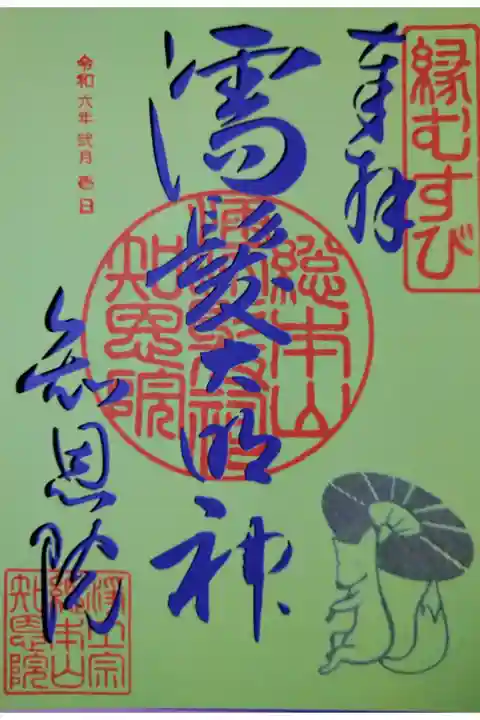 縁むすび
奉拝
濡髪大明神
総本山
濡髪祠
知恩院
令和六年弐月壱日
知恩院
浄土宗
総本山
知恩院